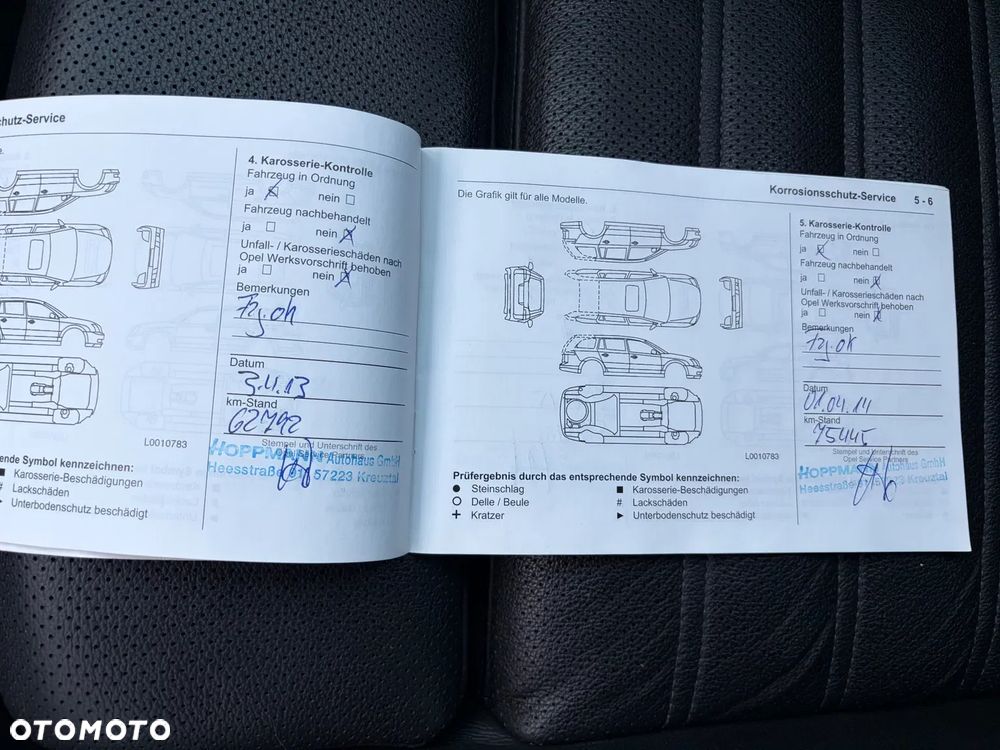 chutz-Service
e.
4. Karosserie-Kontrolle
Fahrzeug in Ordnung
ja nein
Fahrzeug nachbehandelt
ja nein
Unfall- / Karosserieschäden nach
Opel Werksvorschrift behoben
ja nein
Bemerkungen
Fzg. ok
Datum
3.4.13
km-Stand
62792
Stempel und Unterschrift des
HOPPMANN Autohaus GmbH
Heesstraße 57223 Kreuztal
L0010783
ende Symbol kennzeichnen:
Karosserie-Beschädigungen
# Lackschäden
Unterbodenschutz beschädigt
Korrosionsschutz-Service 5 - 6
Die Grafik gilt für alle Modelle.
L0010783
Prüfergebnis durch das entsprechende Symbol kennzeichnen:
● Steinschlag ■ Karosserie-Beschädigungen
○ Delle / Beule # Lackschäden
+ Kratzer ► Unterbodenschutz beschädigt
5. Karosserie-Kontrolle
Fahrzeug in Ordnung
ja nein
Fahrzeug nachbehandelt
ja nein
Unfall- / Karosserieschäden nach
Opel Werksvorschrift behoben
ja nein
Bemerkungen
Fzg. ok
Datum
01.04.14
km-Stand
75445
Stempel und Unterschrift des
Opel Service Partners
HOPPMANN Autohaus GmbH
Heesstraße Kreuztal
OTOMOTO